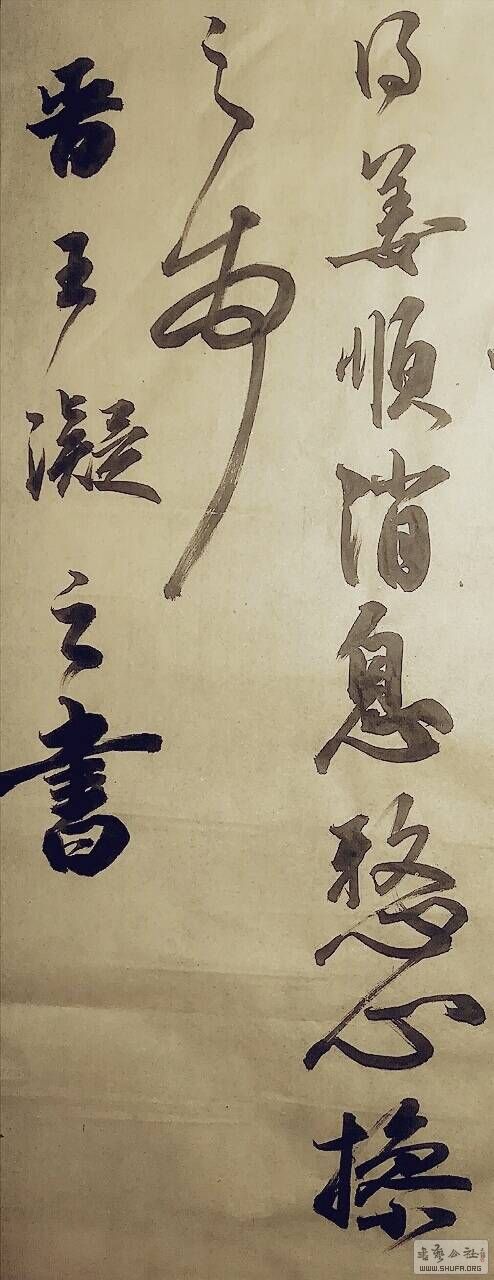 得姜順消息心操
之
晋王凝之書
書藝公社
WWW.SHUFA.ORG